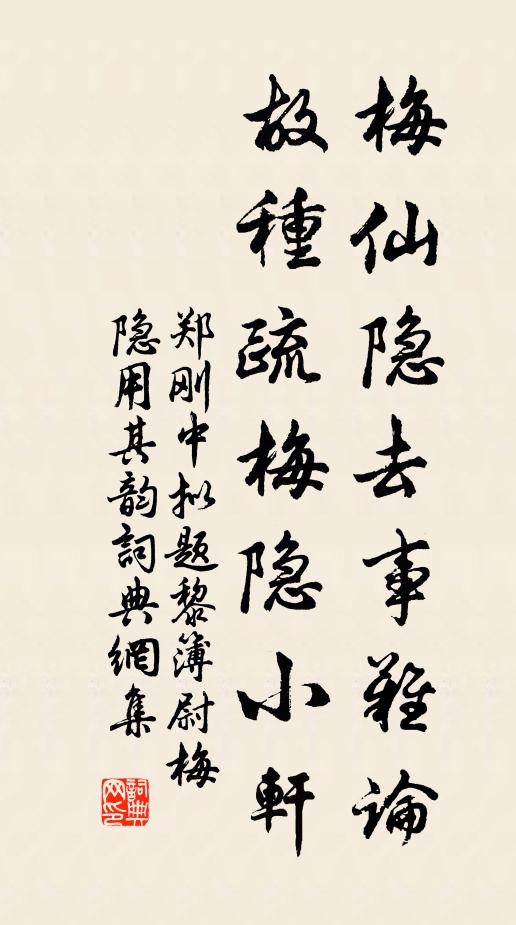 梅仙隐去事難論
故種疏梅隐小軒
郑刚中拟题黎簿尉梅
隐用其韵詞典網集
詞典
网印